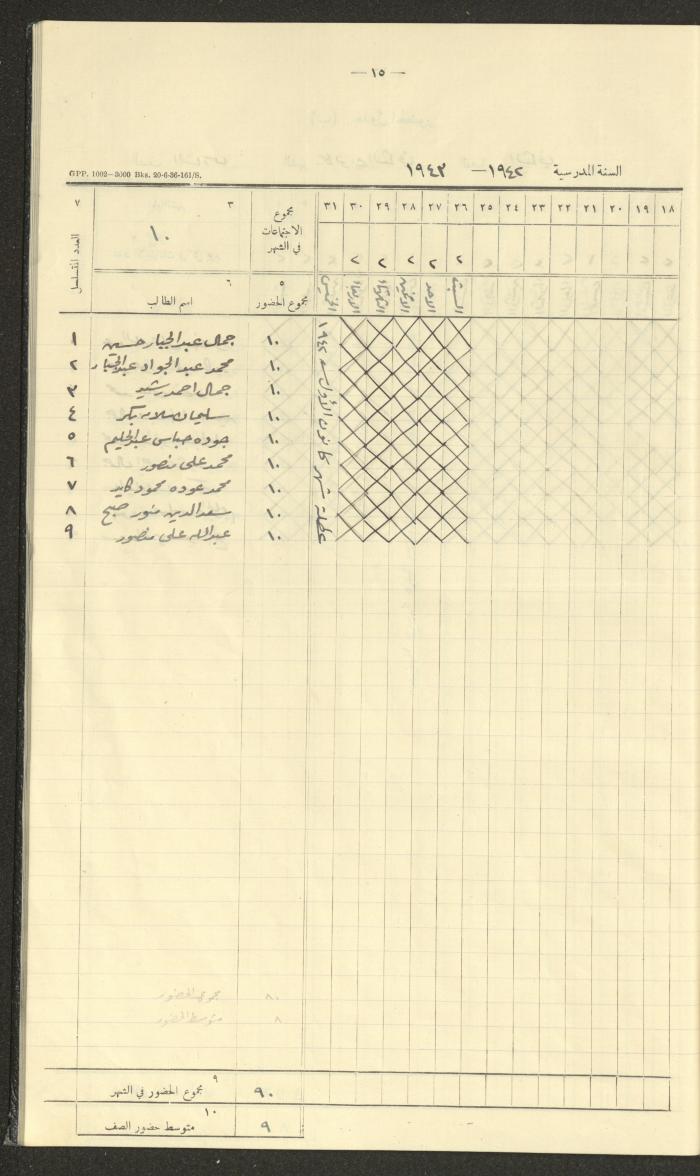 — ١٥ —
السنة المدرسية ١٩٤٢ — ١٩٤٣
GPP. 1002—3000 Bks. 20-6-36-161/S.
١٨ ١٩ ٢٠ ٢١ ٢٢ ٢٣ ٢٤ ٢٥ ٢٦ ٢٧ ٢٨ ٢٩ ٣٠ ٣١ مجموع الاجتماعات في الشهر ٣ ٧
٢ ٢ ٢ ٢ ٢ ١٠ العدد المتسلسل
السبت الاحد الاثنين الثلاثاء الاربعاء الخميس ٥ مجموع الحضور ٦ اسم الطالب
عطلة شهر كانون الأول سنة ١٩٤٢
١٠ جمال عبد الجبار حسين ١
١٠ محمد عبد الجواد عبد الجبار ٢
١٠ جمال احمد رشيد ٣
١٠ سليمان سلامه بكر ٤
١٠ جوده عباس عبد الحليم ٥
١٠ محمد علي منصور ٦
١٠ محمد عوده محمود كايد ٧
١٠ سعد الدين منور صبح ٨
١٠ عبد الله علي منصور ٩
٨٠ مجموع الحضور
٨ متوسط الحضور
٩٠ ٩ مجموع الحضور في الشهر
٩ ١٠ متوسط حضور الصف